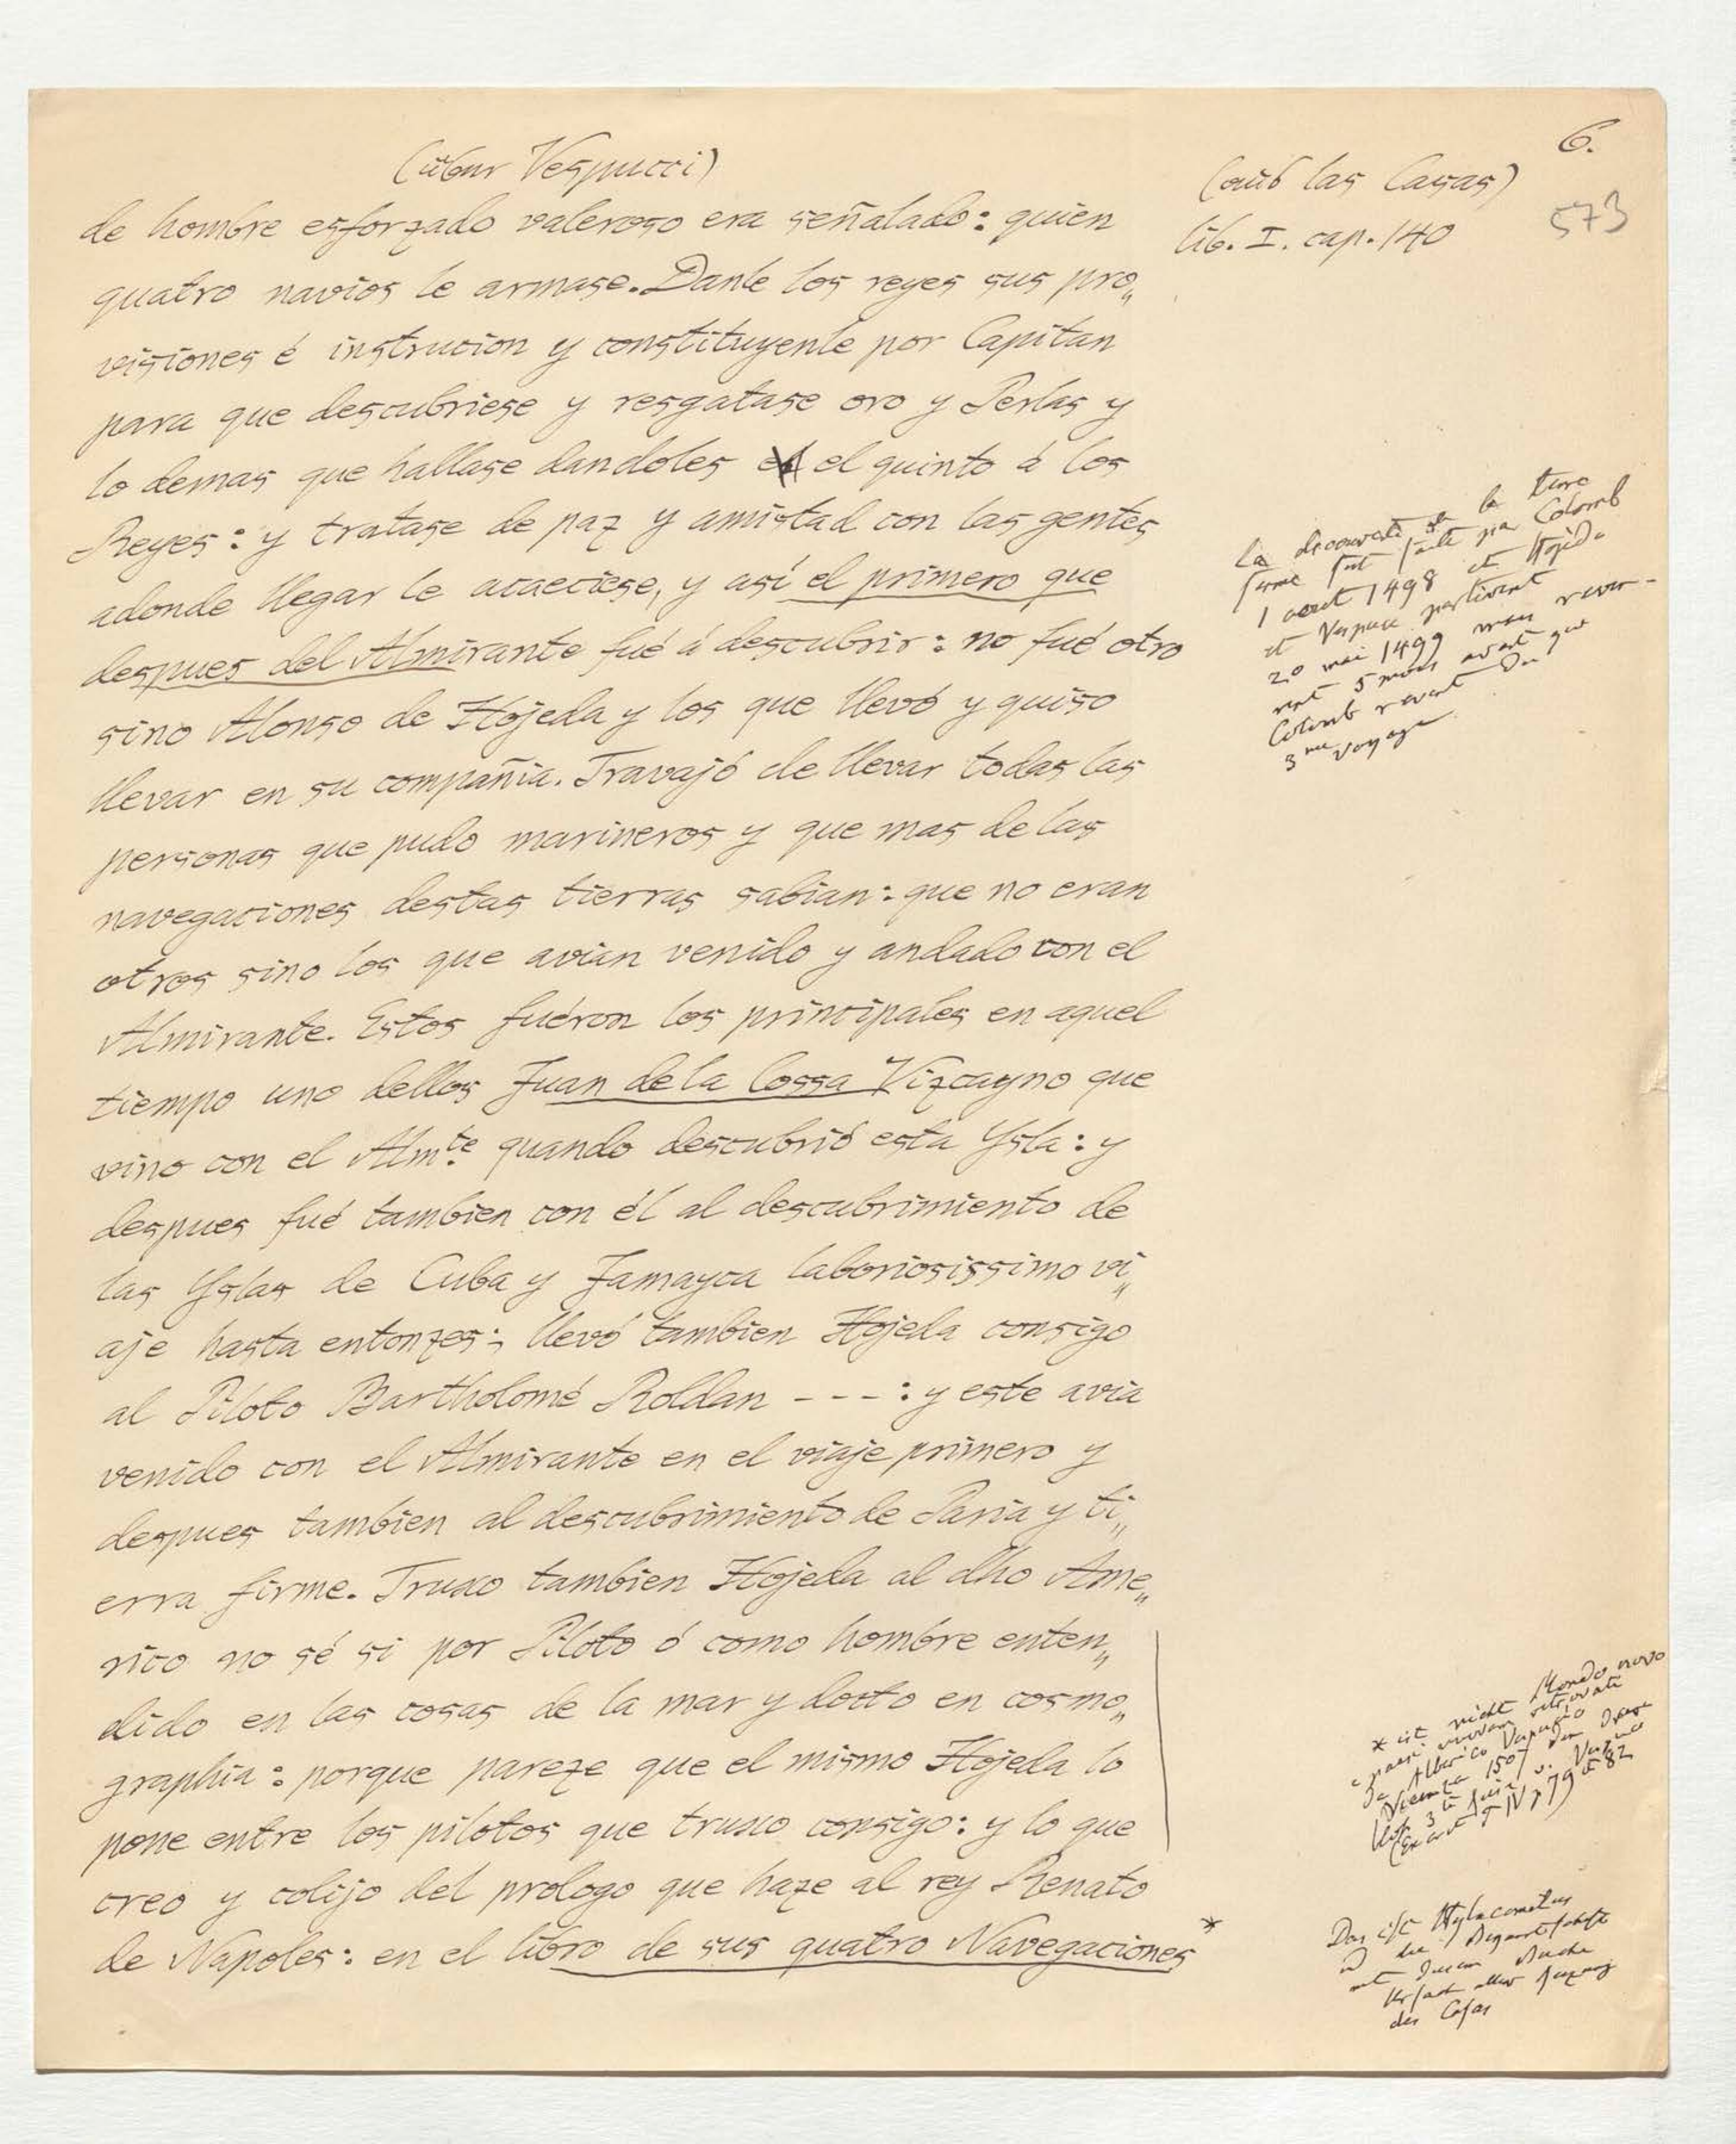 6.
(über Vespucci)
(aus las Casas)
573
lib. I. cap. 140
de hombre esforzado valeroso era señalado: quien
quatro navios le armase. Danle los reyes sus pro„
visiones é instrucion y constituyenle por Capitan
para que descubriese y resgatase oro y Perlas y
lo demas que hallase dandoles el quinto á los
Reyes: y tratase de paz y amistad con las gentes
adonde llegar le acaeciese, y así el primero que
despues del Almirante fué á descubrir: no fué otro
sino Alonso de Hojeda y los que llevó y quiso
llevar en su compañia. Travajó de llevar todas las
personas que pudo marineros y que mas de las
navegaciones destas tierras sabian: que no eran
otros sino los que avian venido y andado con el
Almirante. Estos fuéron los principales en aquel
tiempo uno dellos Juan de la Cossa Vizcayno que
vino con el Almte quando descubrió esta Ysla: y
despues fué tambien con él al descubrimiento de
las Yslas de Cuba y Jamayca laboriosissimo vi„
aje hasta entonzes; llevó tambien Hojeda consigo
al Piloto Bartholomé Roldan - - - : y este avia
venido con el Almirante en el viaje primero y
despues tambien al descubrimiento de Paria y ti„
erra firme. Truxo tambien Hojeda al dho Ame„
rico no sé si por Piloto ó como hombre enten„
dido en las cosas de la mar y docto en cosmo„
graphia: porque pareze que el mismo Hojeda lo
pone entre los pilotos que truxo consigo: y lo que
creo y colijo del prologo que haze al rey Renato
de Napoles: en el libro de sus quatro Navegaciones *
La découverte de la terre
ferme fut faite par Colomb
1 aout 1498 et Hojeda
et Vespuce partirent
20 mai 1499 mais revin-
rent 5 mois avant que
Colomb revint du
3me voyage
* ist nicht Mondo novo
e paesi ritrovati
da Alberico Vespuzio
Vicenza 1507
IV p 79 82
Das ist Hylacomilus
mit diesem Buche
des Casas